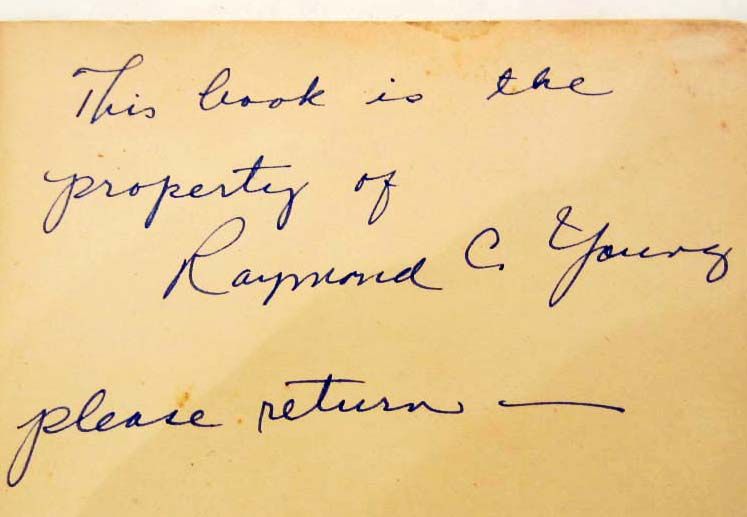 This book is the
property of
Raymond C. Young
please return —